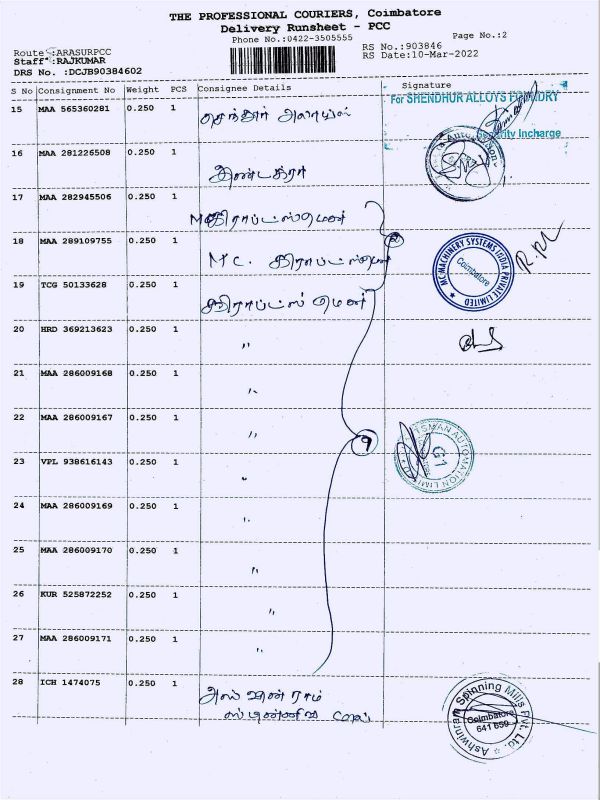 THE PROFESSIONAL COURIERS, Coimbatore
Delivery Runsheet - PCC
Phone No.:0422-3505555
Page No.:2
Route :ARASURPCC
Staff :RAJKUMAR
DRS No. :DCJB90384602
RS No.:903846
RS Date:10-Mar-2022
S No Consignment No Weight PCS Consignee Details Signature
15 MAA 565360281 0.250 1 செந்தூர் அலாய்ஸ்
For SHENDHUR ALLOYS FOUNDRY
Security Incharge
16 MAA 281226508 0.250 1
17 MAA 282945506 0.250 1
18 MAA 289109755 0.250 1 MC. கிராப்ட்ஸ்மென்
MC MACHINERY SYSTEMS INDIA PRIVATE LIMITED
Coimbatore
19 TCG 50133628 0.250 1 கிராப்ட்ஸ் மென்
20 HRD 369213623 0.250 1 "
21 MAA 286009168 0.250 1 "
22 MAA 286009167 0.250 1 "
9
G1
23 VPL 938616143 0.250 1 "
24 MAA 286009169 0.250 1 "
25 MAA 286009170 0.250 1 "
26 KUR 525872252 0.250 1 "
27 MAA 286009171 0.250 1 "
28 ICH 1474075 0.250 1 அஸ்வின் ராம்
ஸ்பின்னிங் மில்ஸ்
Ashwinram Spinning Mills Pvt. Ltd.
Coimbatore
641 659